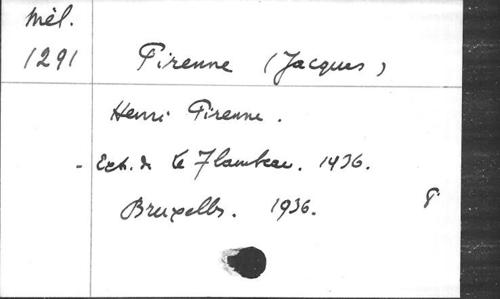 Mél.
1291
Pirenne (Jacques)
Henri Pirenne.
- Ext. de Le Flambeau. 1936.
Bruxelles. 1936.
8°